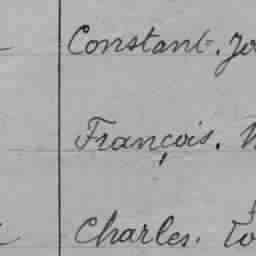 Constant.
François.
Charles.